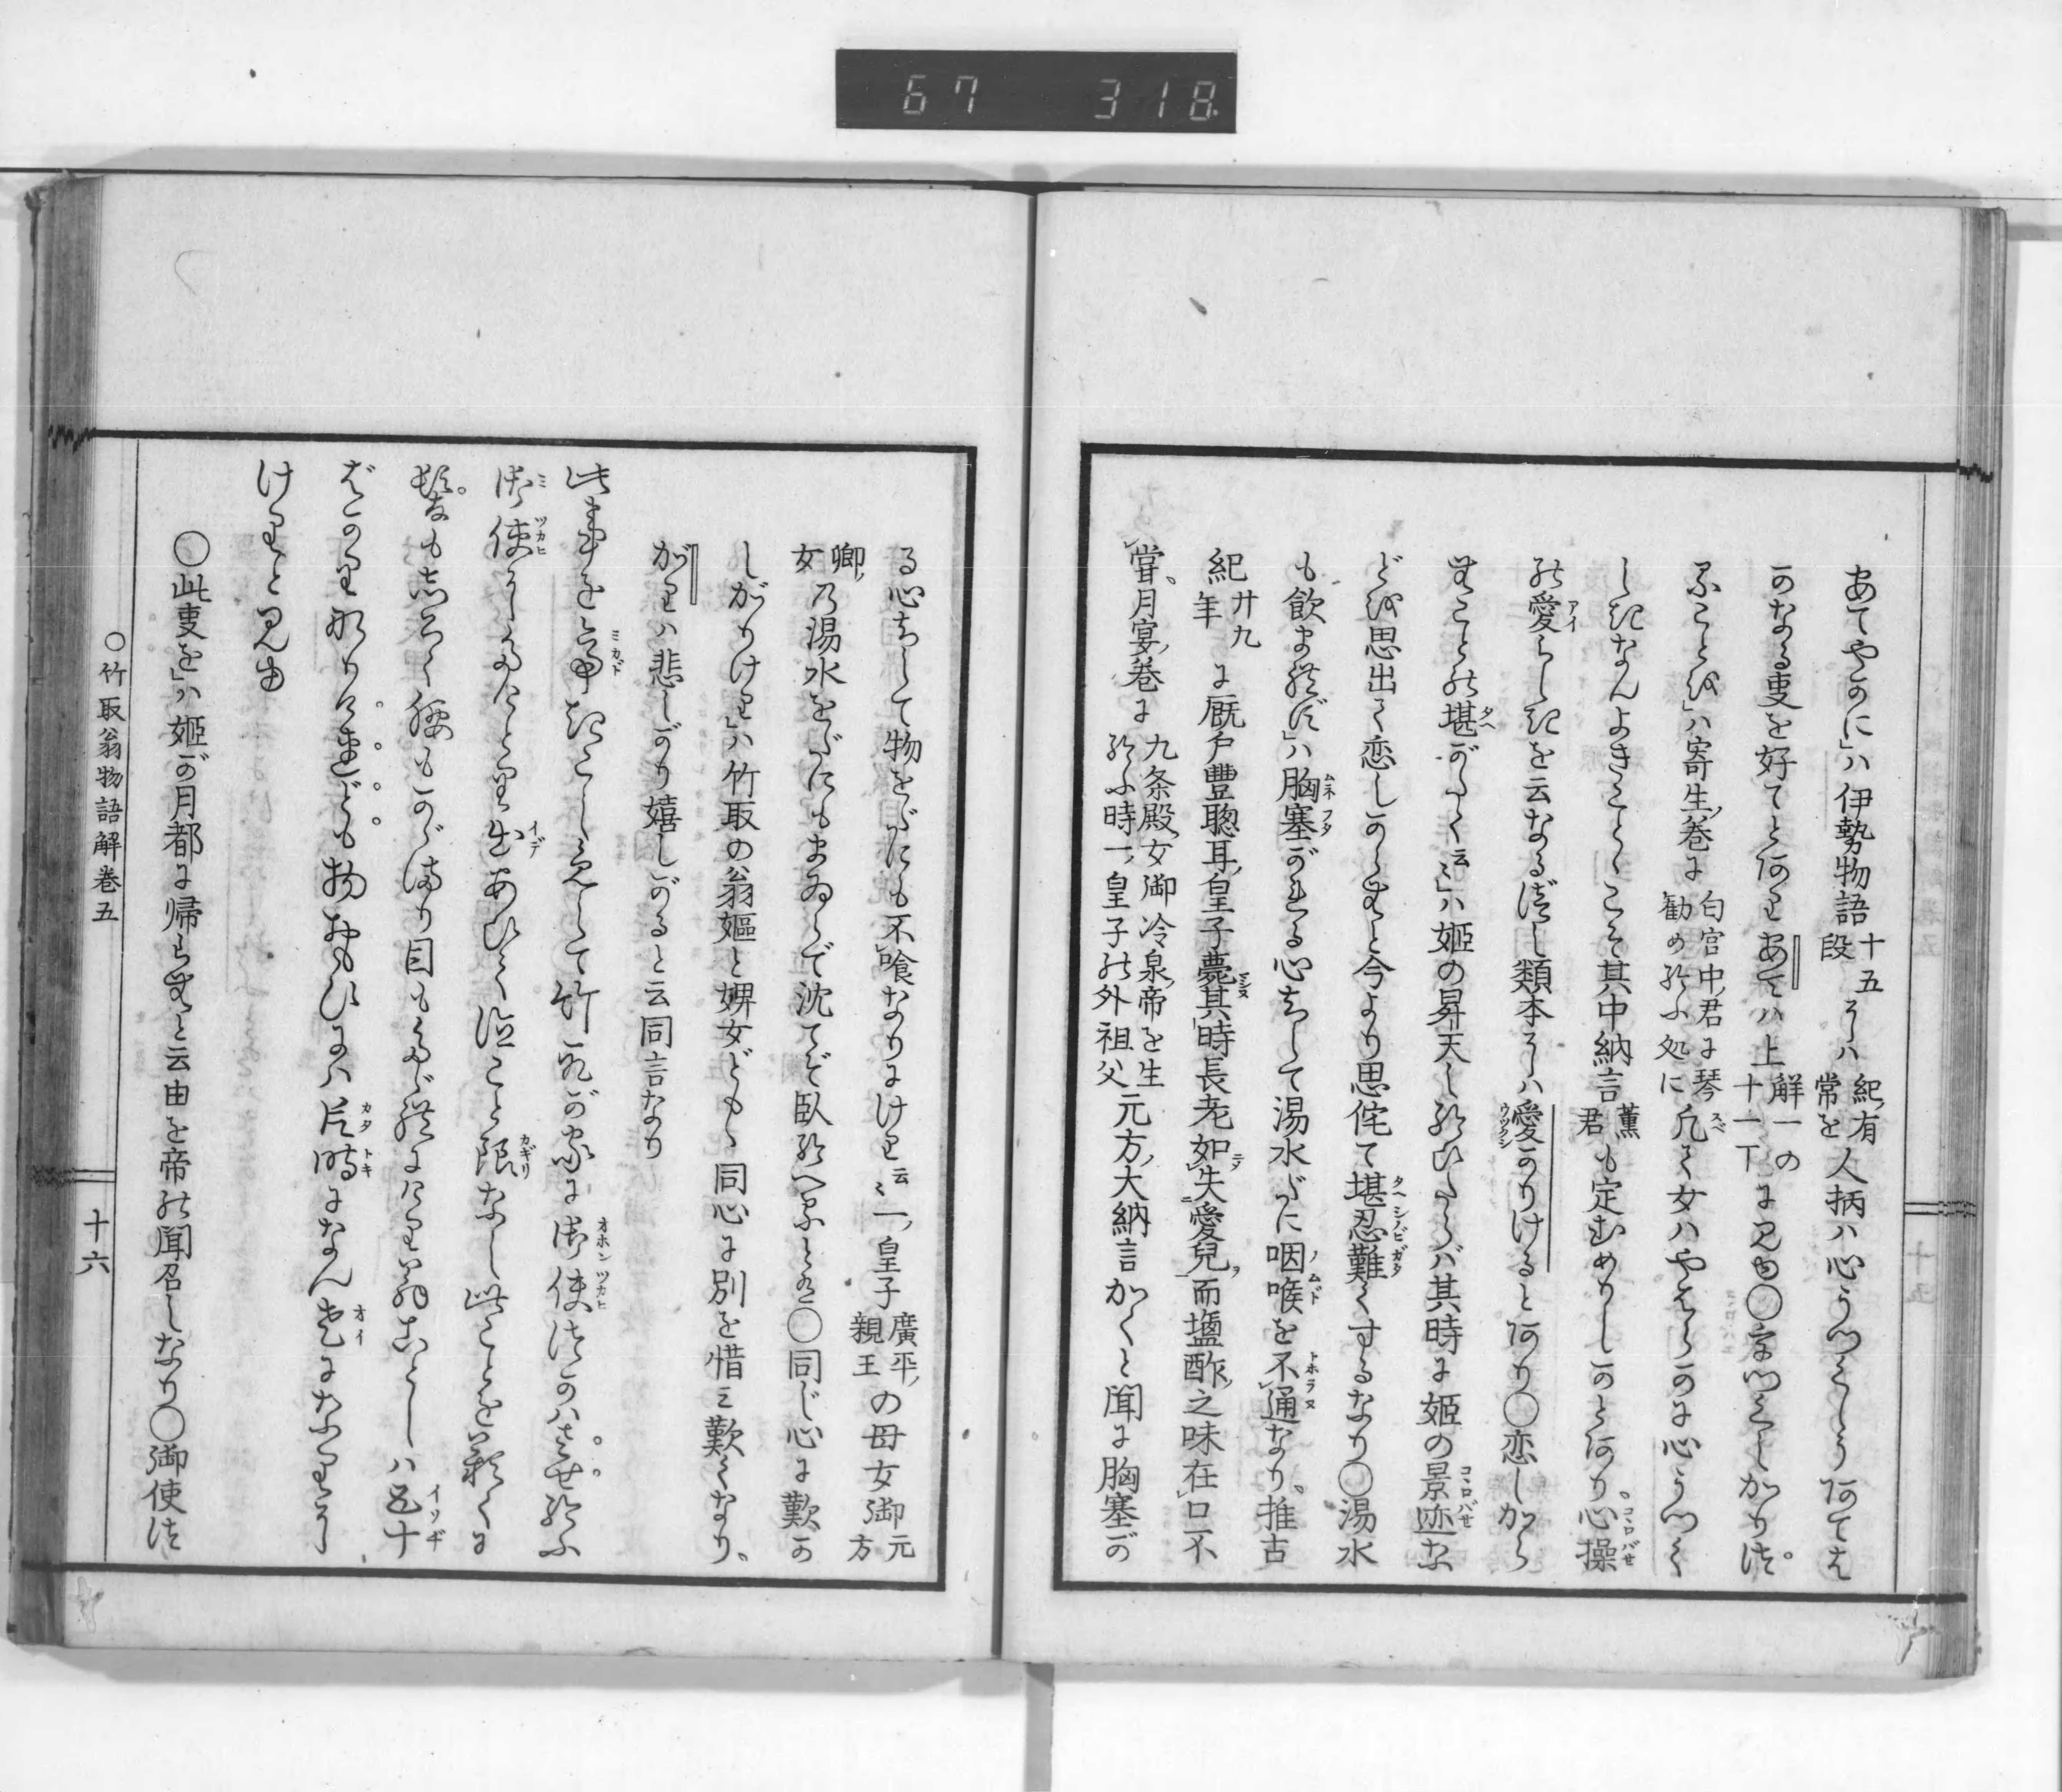 67 318
あてやかに」ハ伊勢物語十五段にハ紀有常を人柄ハ心うつくしうあてはかなる事を好てとありあてハ上解一の十一下に見ゆ○うつくしかりつ
ることを」ハ寄生巻に匂宮中君に琴勧め給ふ処に凡て女ハやはらかに心うつくしきなんよきことゝこそ其中納言薫君も定むめりしかとあり心操
の愛らしきを云なるべし類本にハ愛かりけるとあり○恋しからむことの堪がたく云ミ」ハ姫の昇天し給ひたらバ其時に姫の景迹な
どを思出て恋しからむと今より思侘て堪忍難くするなり○湯水も飲まれず」ハ胸塞がれる心ちして湯水だに咽喉を不通なり推古
紀廿九年に厩戸豊聰耳皇子薨其時長老如失愛兒而塩酢之味在口不
甞月宴巻に九条殿女御冷泉帝を生給ふ時一皇子の外祖父元方大納言かくと聞に胸塞が
る心ちして物をだにも不喰なりにけり云ミ一皇子廣平親王の母女御元方
卿女乃湯水をだにもまゐらで沈てぞ臥給へるとも○同じ心に歎か
しがりけり」ハ竹取の翁嫗と婢女どもゝ同心に別を惜ミ歎くなり
がりハ悲しがり嬉しがると云同言なり
此事を帝きこしめして竹取が家に御使つかハさせ給ふ
御使にたけとり出あひて泣こと限なし此ことを歎くに
髪も志ろく腰もかゞまり目もたゞれにけり翁ことしハ五十
ばかりなりけれども物おもひにハ片時になん老になりに
けりと見ゆ
○此事を」ハ姫が月都に帰らむと云由を帝の聞召しなり○御使つ
○竹取翁物語解巻五
十六